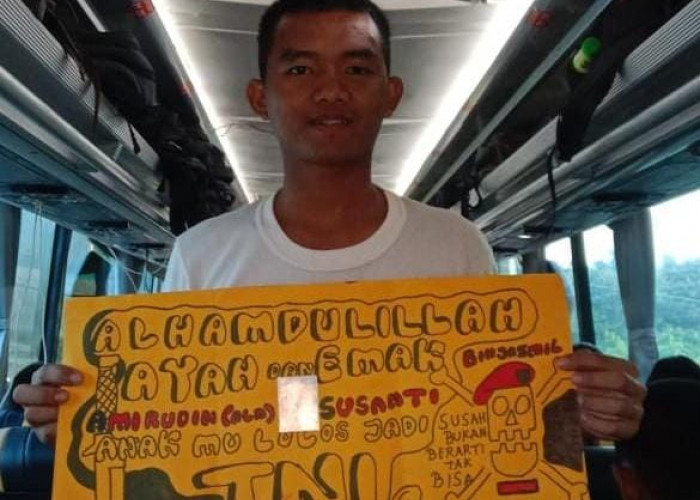 ALHAMDULILLAH
AYAH DAN EMAK
AMIRUDIN (ALM) SUSANTI
ANAK MU LULOS JADI
TNI
SUSAH
BUKAN
BERARTI
TAK
BISA